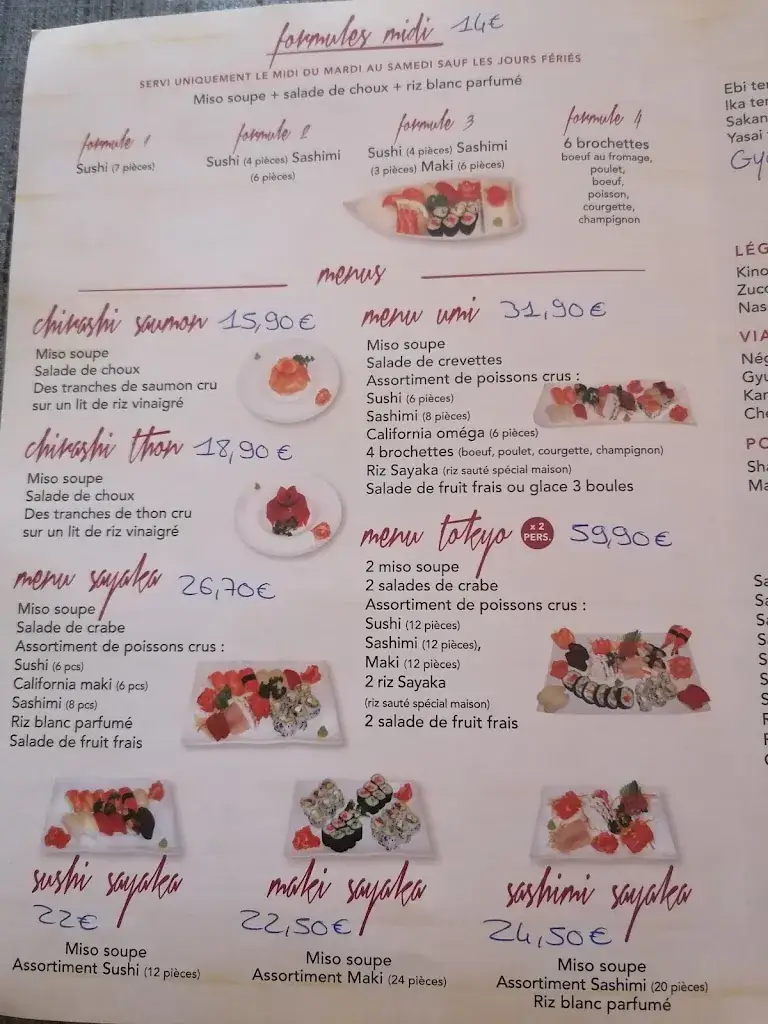 formules midi 14€
SERVI UNIQUEMENT LE MIDI DU MARDI AU SAMEDI SAUF LES JOURS FÉRIÉS
Miso soupe + salade de choux + riz blanc parfumé
formule 1
Sushi (7 pièces)
formule 2
Sushi (4 pièces) Sashimi
(6 pièces)
formule 3
Sushi (4 pièces) Sashimi
(3 pièces) Maki (6 pièces)
formule 4
6 brochettes
boeuf au fromage,
poulet,
boeuf,
poisson,
courgette,
champignon
menus
chirashi saumon 15,90€
Miso soupe
Salade de choux
Des tranches de saumon cru
sur un lit de riz vinaigré
chirashi thon 18,90€
Miso soupe
Salade de choux
Des tranches de thon cru
sur un lit de riz vinaigré
menu sayaka 26,70€
Miso soupe
Salade de crabe
Assortiment de poissons crus :
Sushi (6 pcs)
California maki (6 pcs)
Sashimi (8 pcs)
Riz blanc parfumé
Salade de fruit frais
menu umi 31,90€
Miso soupe
Salade de crevettes
Assortiment de poissons crus :
Sushi (6 pièces)
Sashimi (8 pièces)
California oméga (6 pièces)
4 brochettes (boeuf, poulet, courgette, champignon)
Riz Sayaka (riz sauté spécial maison)
Salade de fruit frais ou glace 3 boules
menu tokyo x 2 PERS. 59,90€
2 miso soupe
2 salades de crabe
Assortiment de poissons crus :
Sushi (12 pièces)
Sashimi (12 pièces),
Maki (12 pièces)
2 riz Sayaka
(riz sauté spécial maison)
2 salade de fruit frais
sushi sayaka
22€
Miso soupe
Assortiment Sushi (12 pièces)
maki sayaka
22,50€
Miso soupe
Assortiment Maki (24 pièces)
sashimi sayaka
24,50€
Miso soupe
Assortiment Sashimi (20 pièces)
Riz blanc parfumé
Ebi te
Ika te
Sakan
Yasai
Gy
LÉG
Kino
Zucc
Nas
VIA
Nég
Gyu
Kar
Che
PO
Sha
Ma